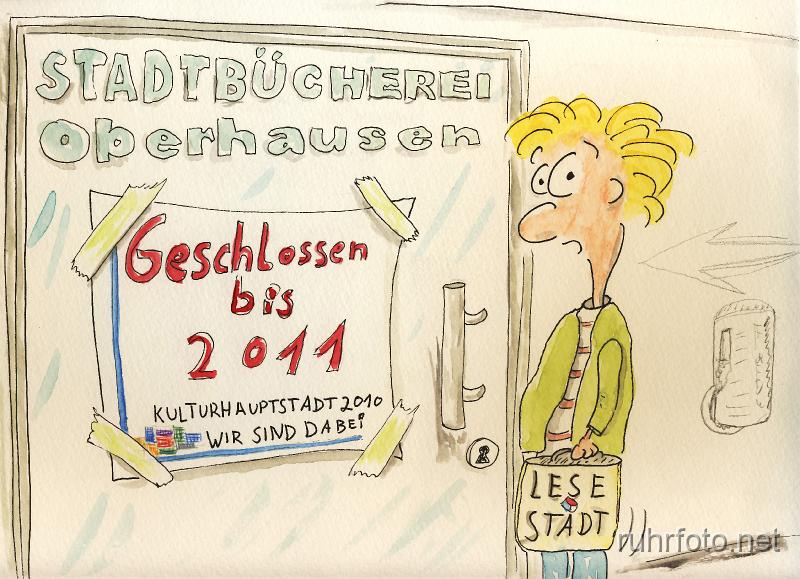 STADTBÜCHEREI
Oberhausen
Geschlossen
bis
2011
KULTURHAUPTSTADT 2010
WIR SIND DABEI
LESE
STADT
ruhrfoto.net